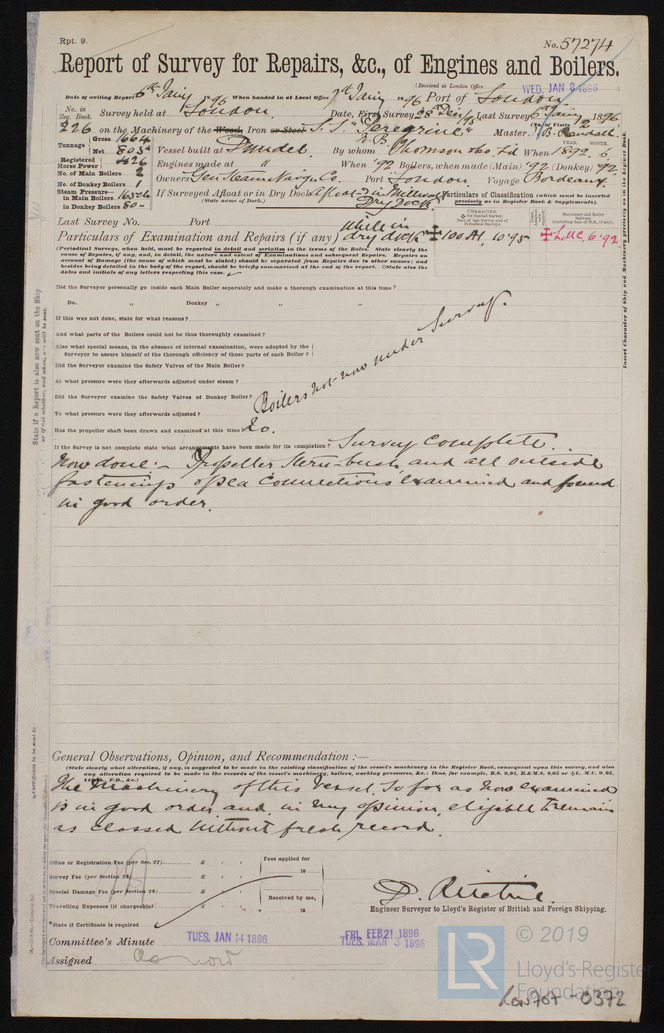 Rpt. 9.
No. 57274
Report of Survey for Repairs, &c., of Engines and Boilers.
(Received at London Office WED. JAN 8 1896)
Date of writing Report 6th Jany 1896 When handed in at Local Office 7th Jany 1896 Port of London
No. in Reg. Book. Survey held at London Date, First Survey 28 Dec /95 Last Survey 6 Jany 1896
(No. of Visits 2)
226 on the Machinery of the Wood, Iron or Steel S.S. "Peregrine" Master
Tonnage Gross 1664 Net 803 Vessel built at Dundee By whom W. B. Thomson & Co. L'd When 1892. 6
YEAR. MONTH.
Registered Horse Power 426 Engines made at " When '92 Boilers, when made (Main) '92 (Donkey) '92
No. of Main Boilers 2 Owners Gen Steam Navign Co. Port London Voyage Bordeaux
No. of Donkey Boilers 1
Steam Pressure— in Main Boilers in Donkey Boilers 80
If Surveyed Afloat or in Dry Dock Afloat & in Millwall Dry Dock
(State name of Dock.)
Particulars of Classification (which must be inserted precisely as in Register Book & Supplements).
Last Survey No. Port
CHARACTER.
Particulars of Examination and Repairs (if any) While in dry dock ✠ 100 A1, 10.95 ✠ LMC. 6.92
(Periodical Surveys, when held, must be reported in detail and seriatim in the terms of the Rules. State clearly the
cause of Repairs, if any, and, in detail, the nature and extent of Examinations and subsequent Repairs. Repairs on
account of Damage (the cause of which must be stated) should be separated from Repairs due to other causes; and
besides being detailed in the body of the report, should be briefly summarised at the end of the report. State also the
dates and initials of any letters respecting this case.
Did the Surveyor personally go inside each Main Boiler separately and make a thorough examination at this time?
Do. " Donkey " " "
If this was not done, state for what reasons?
And what parts of the Boilers could not be thus thoroughly examined?
Also what special means, in the absence of internal examination, were adopted by the
Surveyor to assure himself of the thorough efficiency of those parts of each Boiler?
Did the Surveyor examine the Safety Valves of the Main Boiler?
At what pressure were they afterwards adjusted under steam?
Did the Surveyor examine the Safety Valves of Donkey Boiler?
To what pressure were they afterwards adjusted?
Boilers not now under Survey.
Has the propeller shaft been drawn and examined at this time? No.
If the Survey is not complete state what arrangements have been made for its completion? Survey complete.
Now done:— Propeller Stern-bush, and all outside
fastenings of sea connections examined and found
in good order.
General Observations, Opinion, and Recommendation:—
(State clearly what alteration, if any, is suggested to be made in the existing classification of the vessel's machinery in the Register Book, consequent upon this survey, and also
any alteration required to be made in the records of the vessel's machinery, boilers, working pressures, &c.; thus, for example, B.S. 9,95, B.&M.S. 9,95 or L.M.C. 9,95,
The Machinery of this Vessel, so far as now examined
is in good order and, in my opinion, eligible to remain
as classed without fresh record.
Office or Registration Fee (per Sec. 27) £
Survey Fee (per Section 28) £
Special Damage Fee (per Section 28) £
Travelling Expenses (if chargeable) £
Fees applied for
18
Received by me,
18
State if Certificate is required
D. Ritchie.
Engineer Surveyor to Lloyd's Register of British and Foreign Shipping.
Committee's Minute TUES. JAN 14 1896 FRI. FEB 21 1896
TUES. MAR 3 1896
Assigned as now
State if a Report is also now sent on the Ship
or if not whether, and when, one will be sent.
Insert Character of Ship and Machinery precisely as in the Register Book.
LR
© 2019
Lloyd's Register
Foundation
LON707-0372